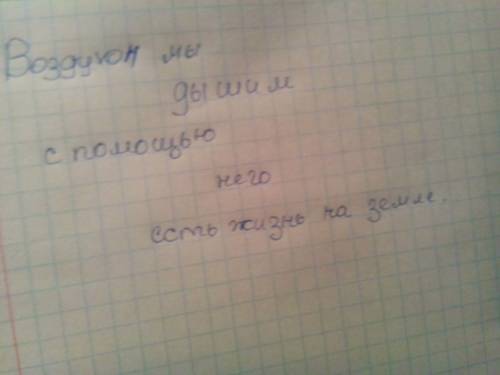 Воздухом мы
дышим
с помощью
него
есть жизнь на земле.